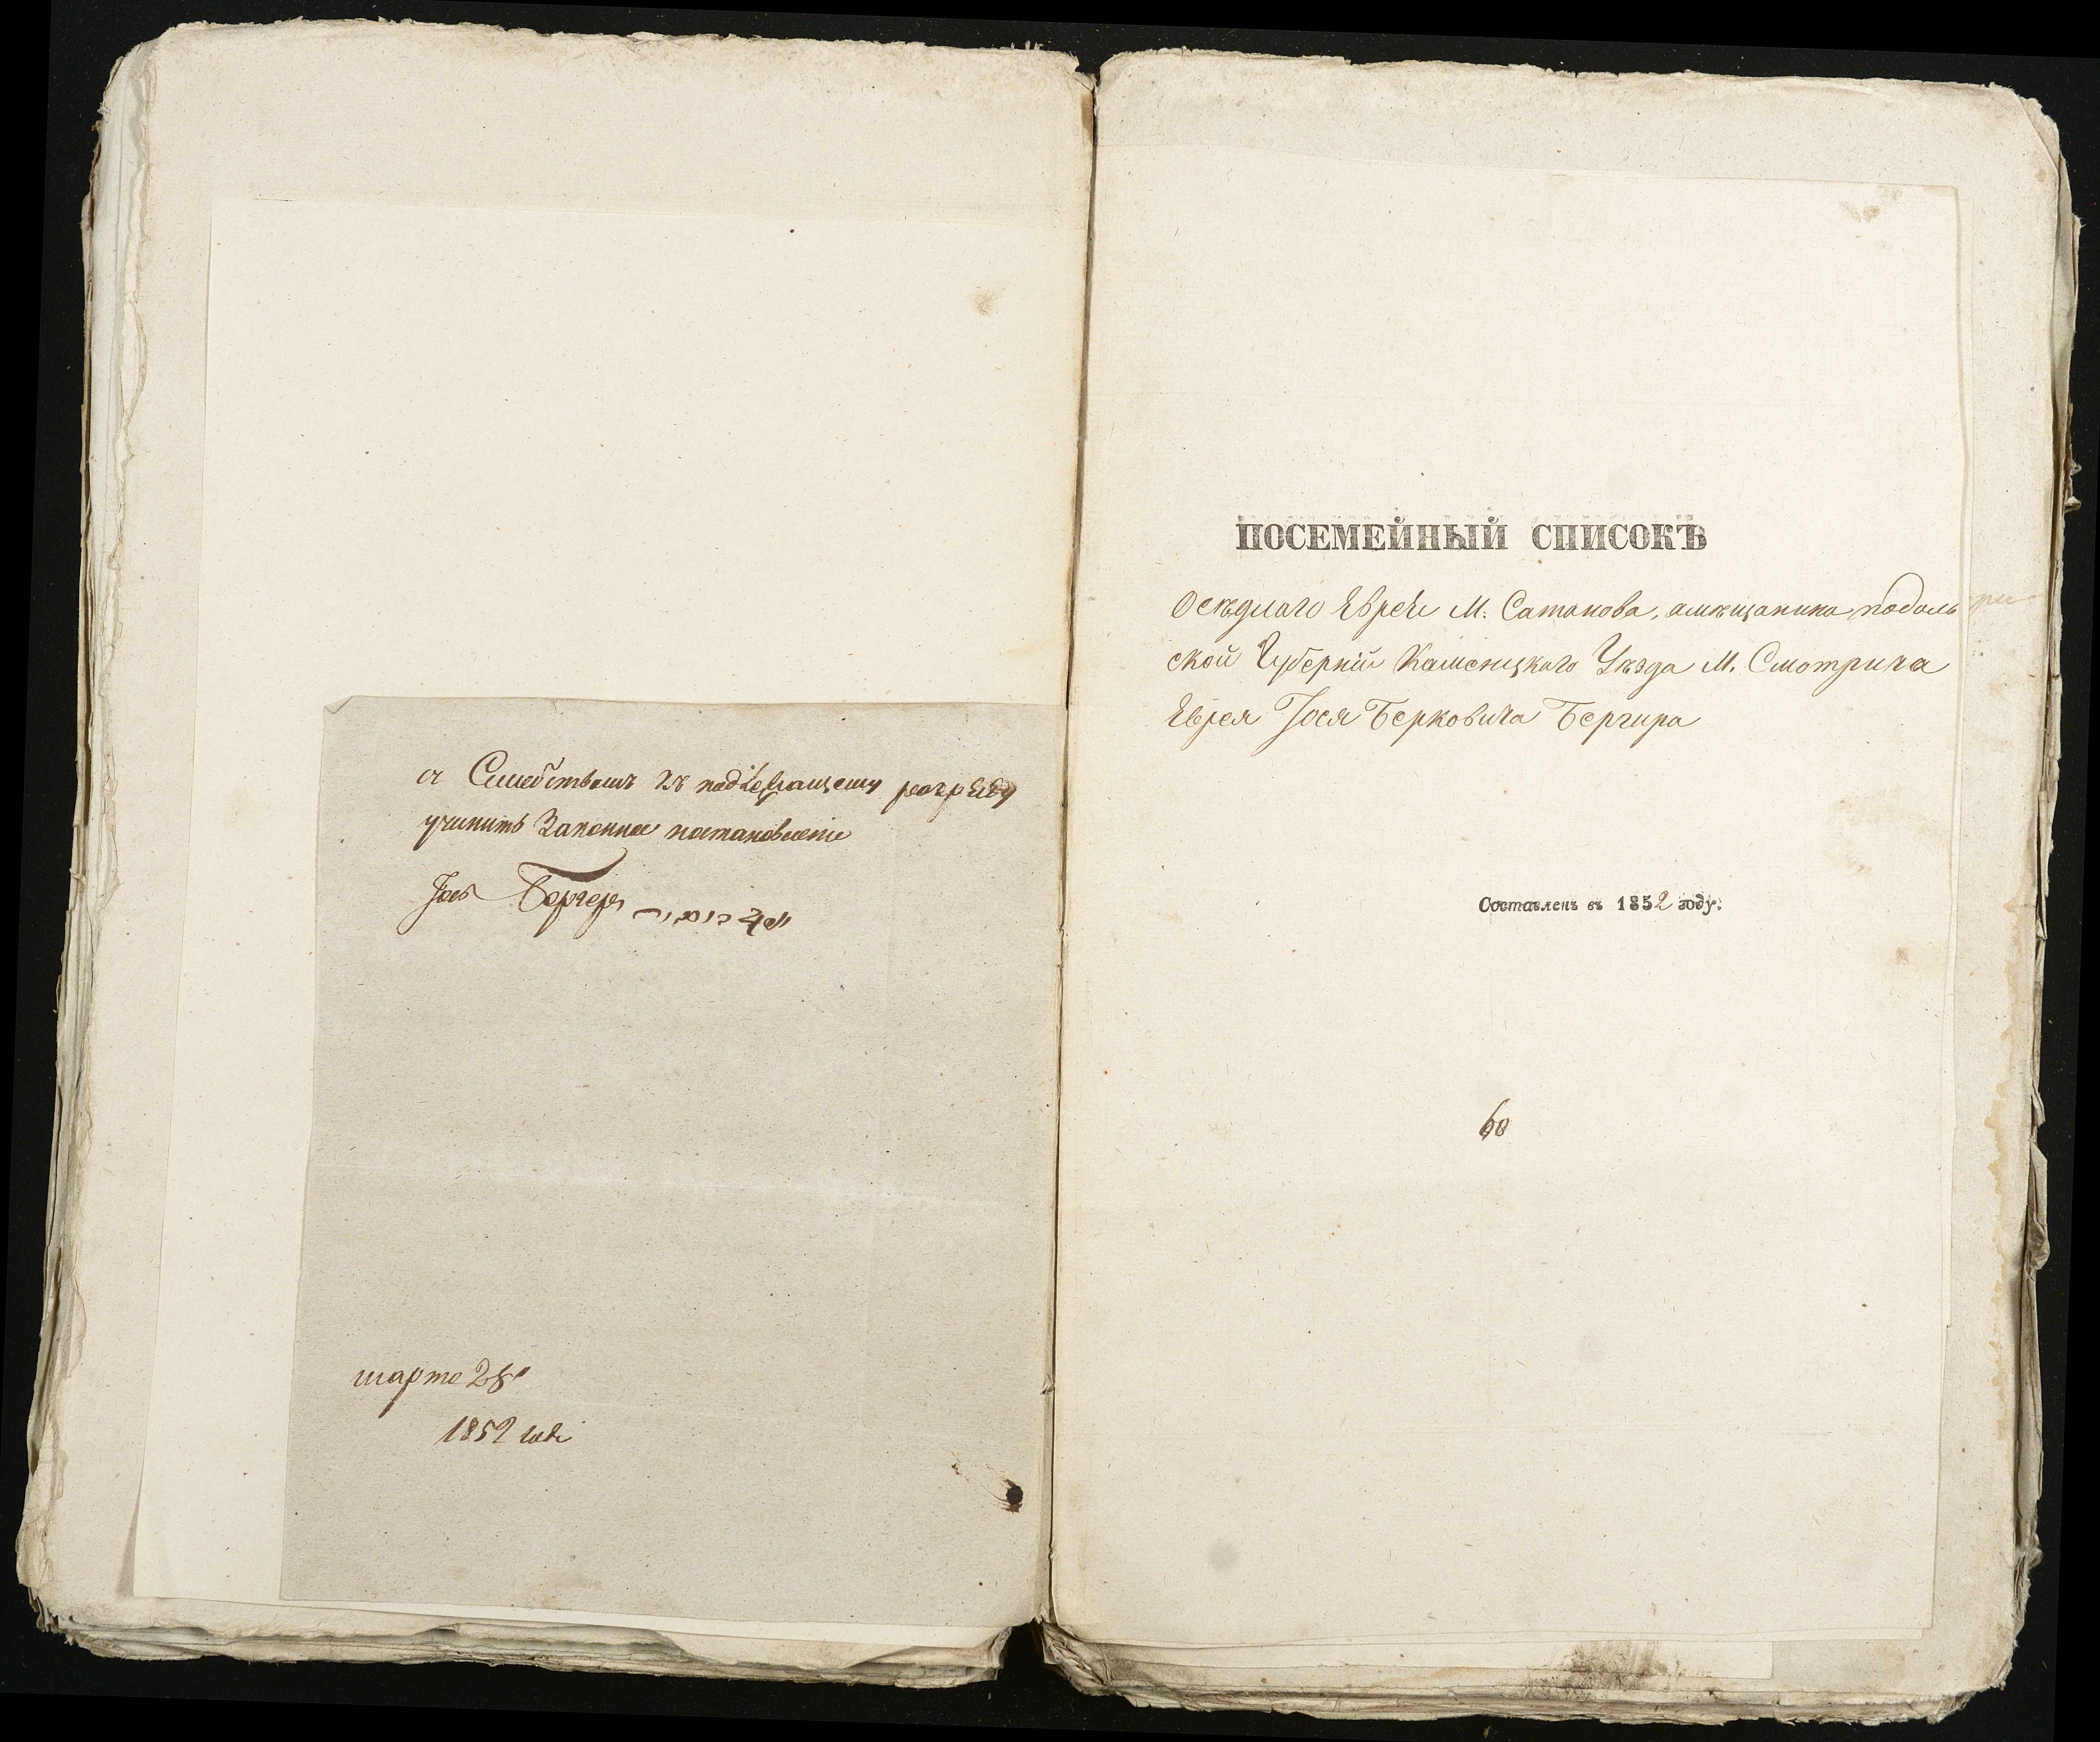 съ Семействомъ къ надлежащему разряду
учинить Законное постановление
Іось Бергеръ
марта 28
1852 года
ПОСЕМЕЙНЫЙ СПИСОКЪ
Осѣдлаго Еврея М. Сатанова, а мѣщанина подоль
ской Губерніи Каменецкаго Уѣзда М. Смотрича
Еврея Іося Берковича Бергира
Составленъ въ 1852 году.
60